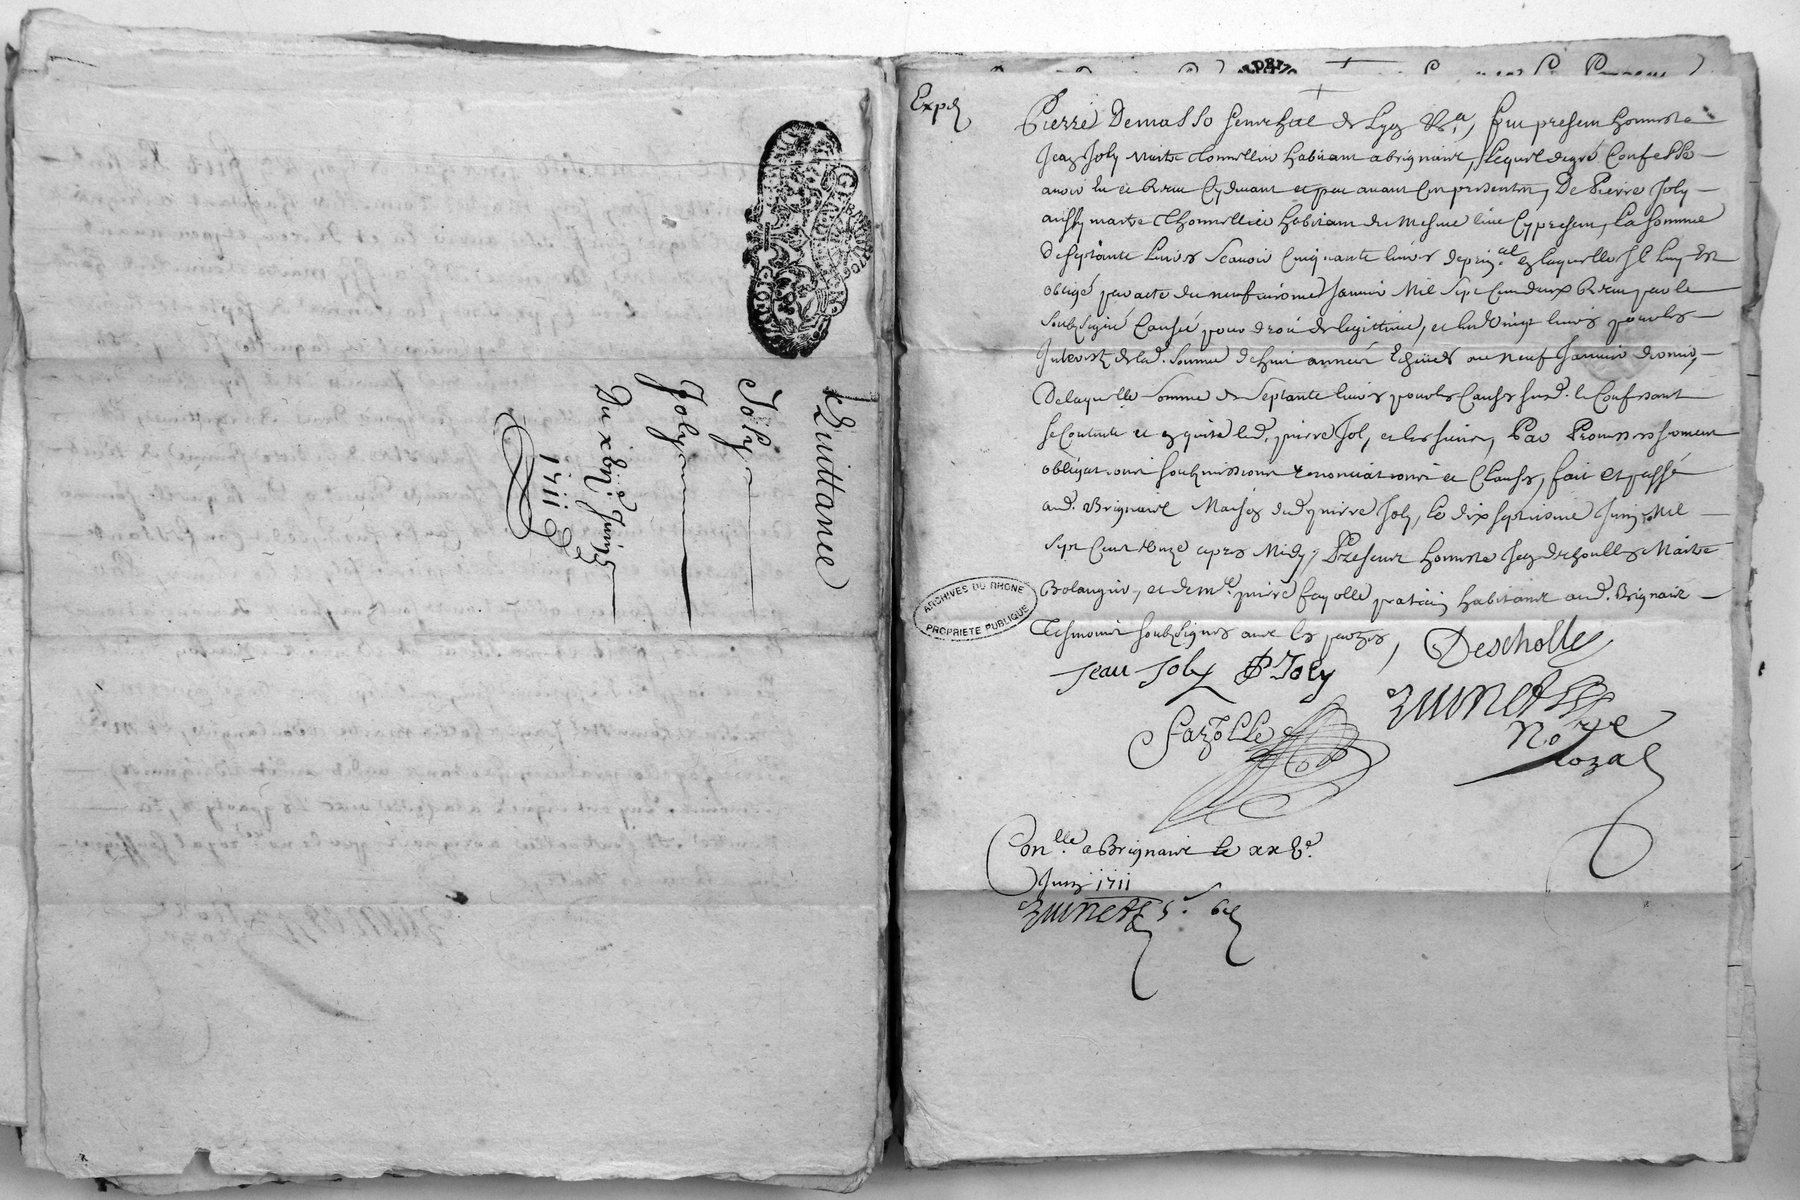 Quittance
Joly
Joly
Du xbij.e Juing
1711
Expéd
Pierre Demasso senechal de Lyon &a, fut present honneste
Jean Joly maitre thonnellier habitant a brignaiz, lequel degré confesse
avoir eu et receu cydevant et par avant ces presentes, De Pierre Joly
aussy maitre thonnellier habitant du mesme lieu cy present, la somme
de septante livres scavoir cinquante livres de prin.al en laquelle il luy est
obligé par acte du neufviesme Janvier mil sept cent deux receu par le
soubzsigné causée pour droit de legittime, et les vingt livres pour les
Interestz de lad. somme de huit années echües au neuf Janvier dernier,
De laquelle somme de septante livres pour les causes susd. le confessant
se contente et en quitte led. pierre Joly, et les siens, Par Promesses serment
obligations soubmissions renonciations et clauses, fait et passé
aud. Brignaiz Maison dud. pierre Joly, le dix septiesme Juin Mil
sept cent unze apres Midy, Presents honneste Jean descholles Maitre
Bolangier, et de me. pierre fayolle praticien habitants aud. Brignaiz
Tesmoins soubzsignés avec les parties,
Jean Joly P Joly
Descholles
Fayolle
No.re
Royal
Con.lle a Brignaiz le xxb.e
Juin 1711
ARCHIVES DU RHONE
PROPRIETE PUBLIQUE